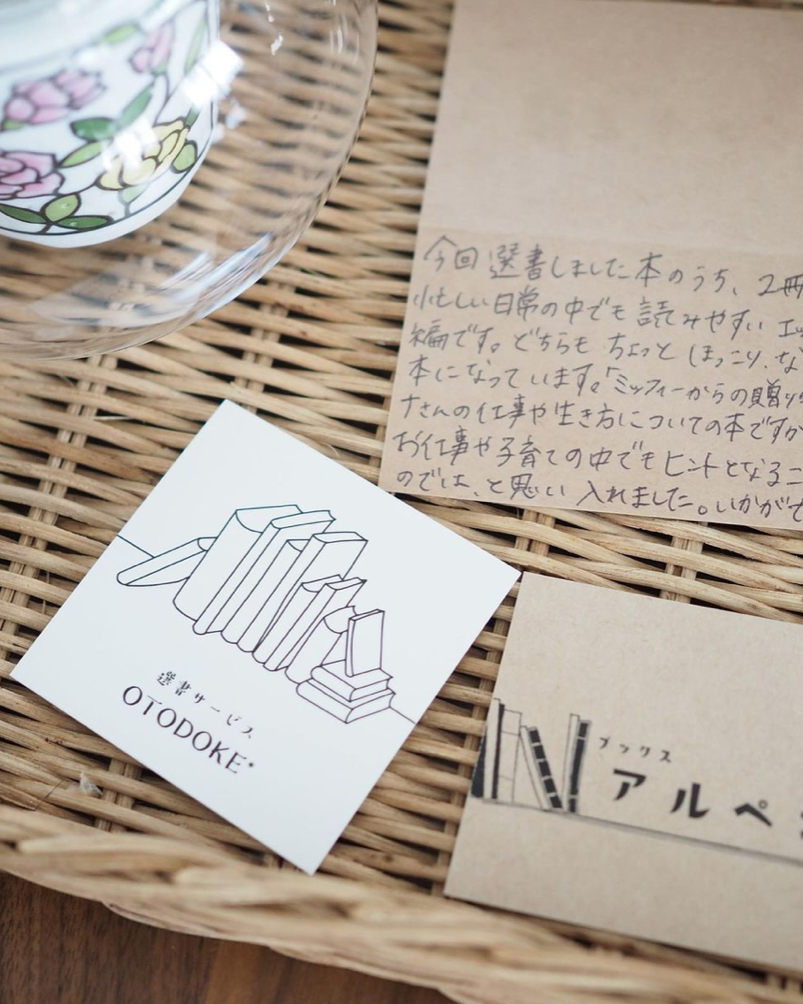 今回選書しました本のうち、2冊
忙しい日常の中でも読みやすいエッ
編です。どちらもちょっとほっこり、な
本になっています。「ミッフィーからの贈り
ナさんの仕事や生き方についての本ですか
お仕事や子育ての中でもヒントとなるこ
のでは、と思い入れました。いかがで
選書サービス
OTODOKE
ブックス
アルペ